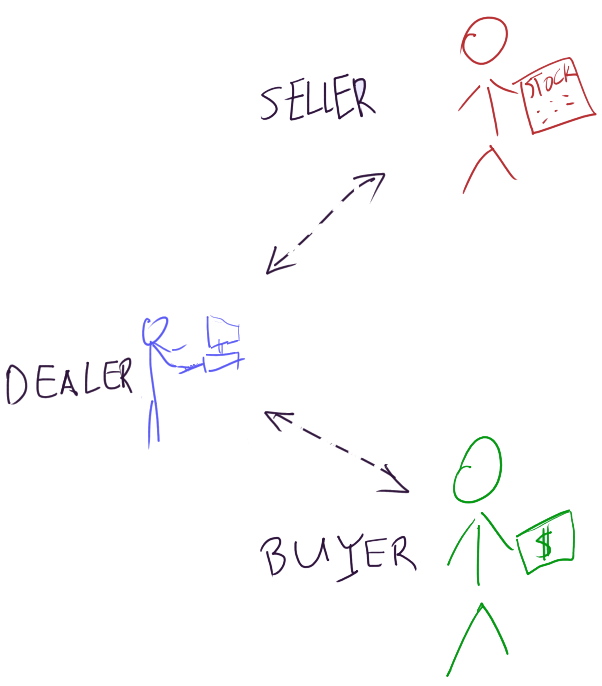 SELLER
STOCK
DEALER
BUYER
$